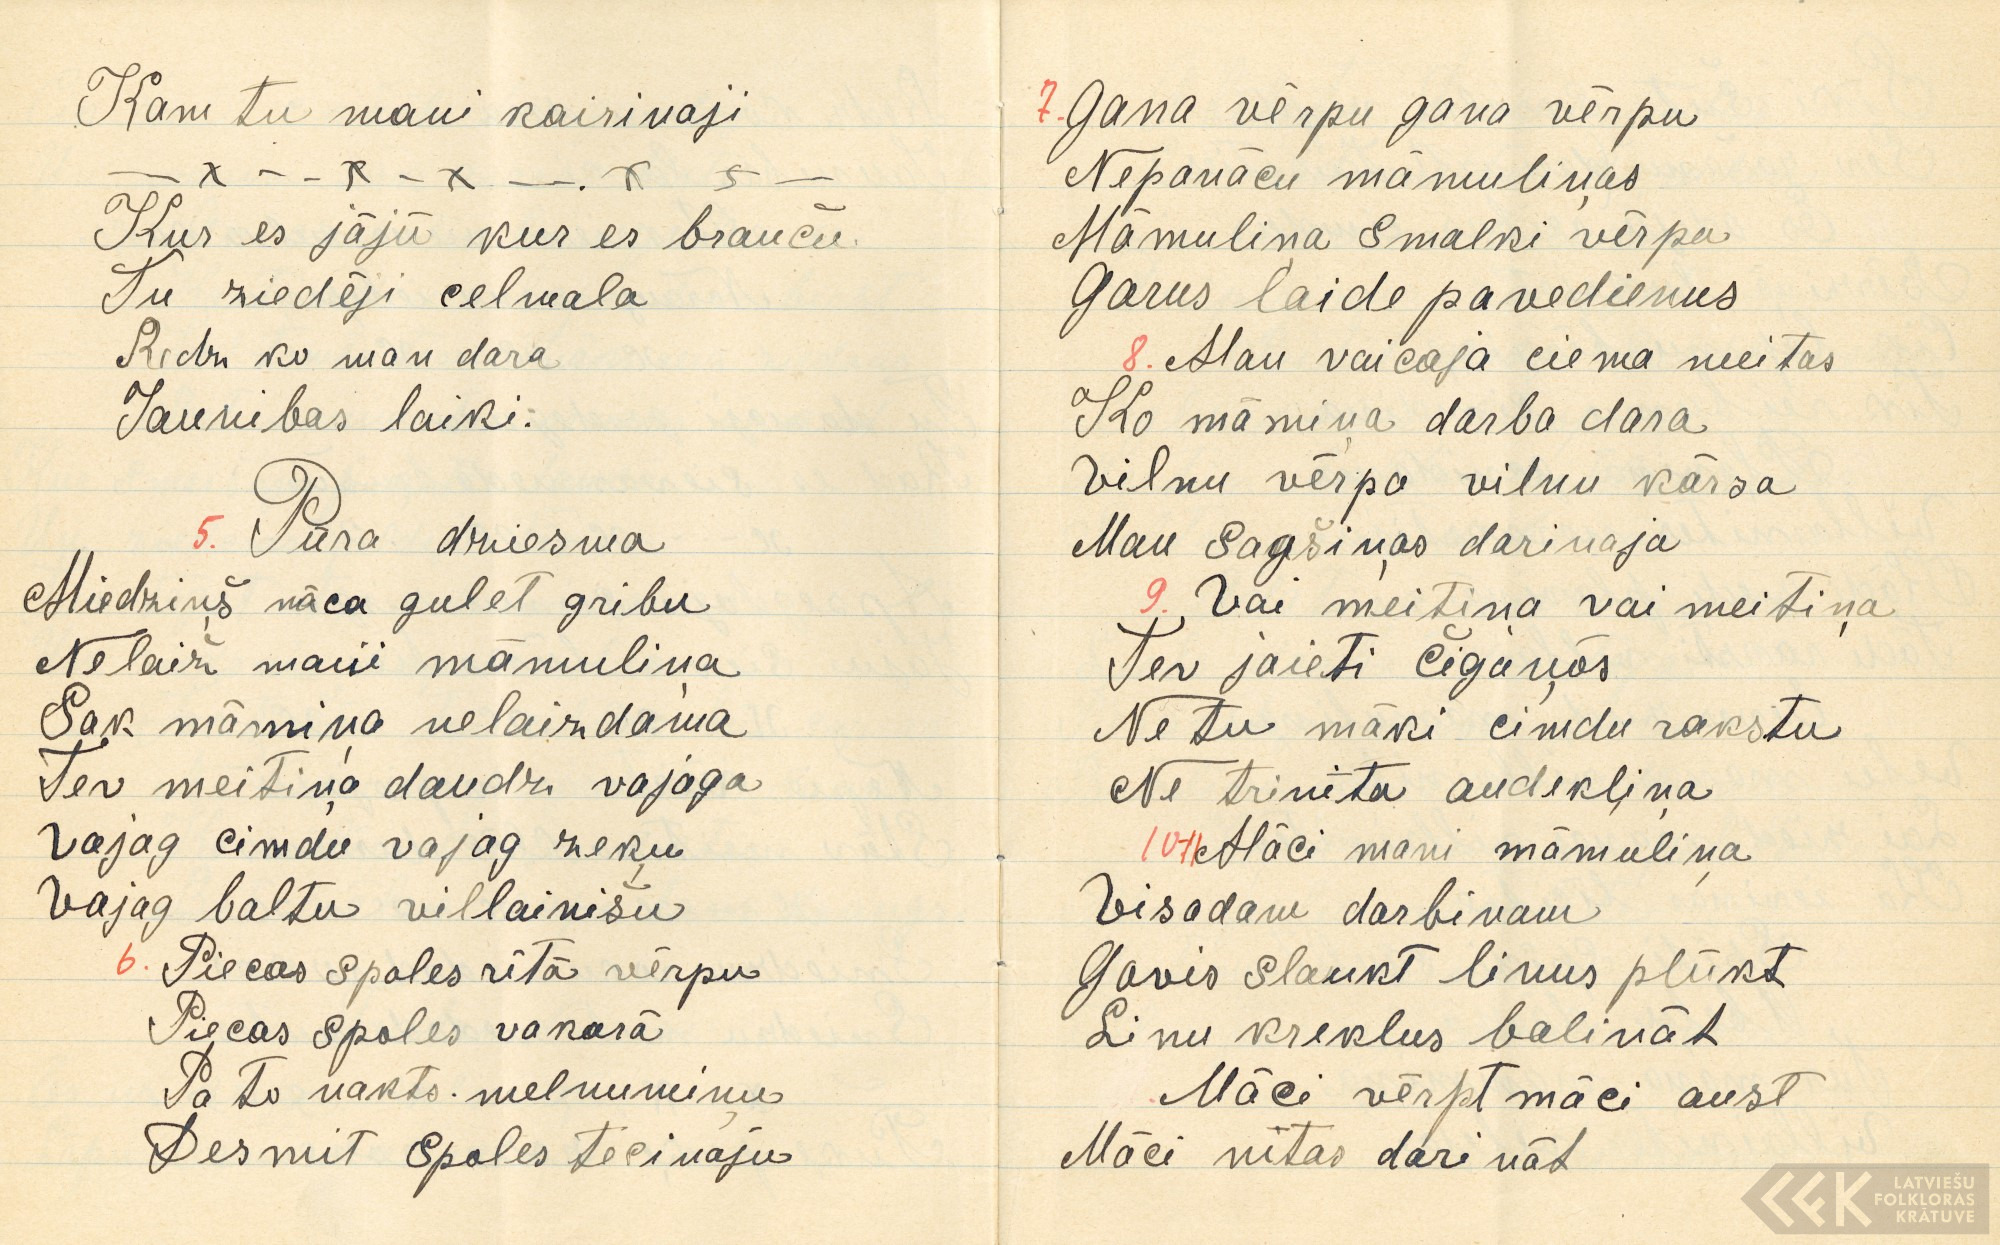 Kam tu mani kairinaji
— x - - x - x —. x 5 —
Kur es jāju kur es braucu
Tu ziedēji celmala
Redz ko man dara
Jaunibas laiki.
5. Pūra dziesma
Miedziņš nāca gulet gribu
Nelaiž mani māmuliņa
Sak māmiņa nelaizdama
Tev meitiņa daudz vajaga
Vajag cimdu vajag zeķu
Vajag baltu villainišu
6. Piecas spoles rītā vērpu
Piecas spoles vakarā
Pa to nakts. melnumiņu
Desmit spoles tecinaju
7. Gana vērpu gana vērpu
Nepanācu māmuliņas
Māmuliņa smalki vērpa
Garus laide pavedienus
8. Man vaicaja ciema meitas
Ko māmiņa darba dara
Vilnu vērpa vilnu kārsa
Man sagšiņas darinaja
9. Vai meitiņa vai meitiņa
Tev jaieti čigaņōs
Ne tu māki cimdu rakstu
Ne trinīta audekliņa
10 Māci mani māmuliņa
Visadam darbinam
Govis slaukt linus plūkt
Linu kreklus balināt
Māci vērpt māci aust
Māci nītas darināt
LATVIEŠU
FOLKLORAS
KRĀTUVE